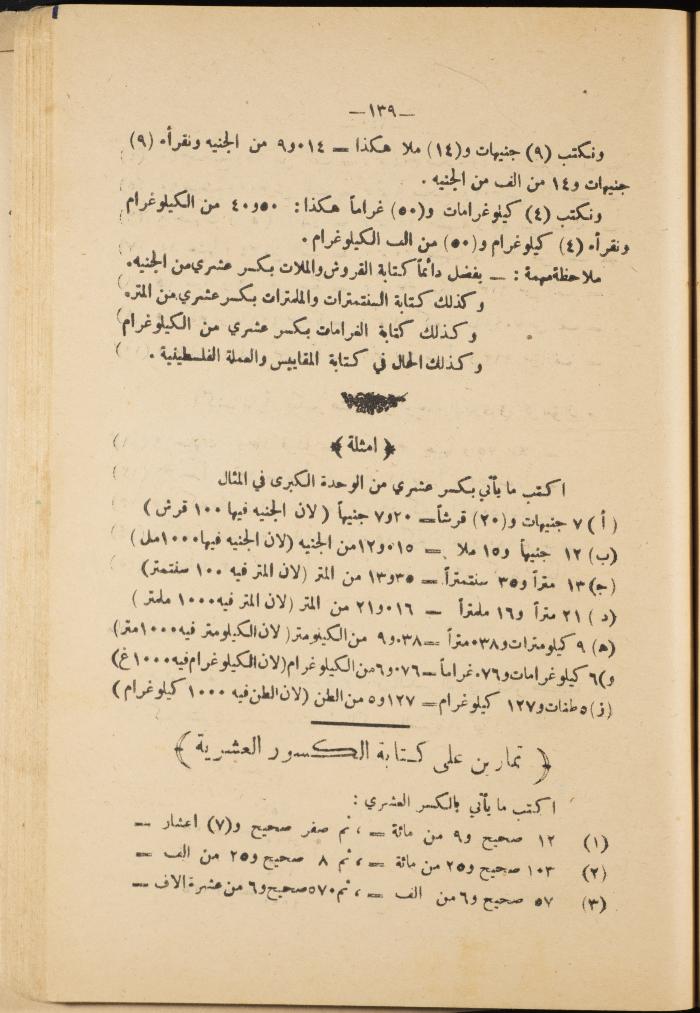 —١٣٩—
ونكتب (٩) جنيهات و(١٤) ملا هكذا — ٠١٤و٩ من الجنيه ونقرأه (٩)
جنيهات و١٤ من الف من الجنيه .
ونكتب (٤) كيلوغرامات و(٥٠) غراماً هكذا : ٠٥٠و٤ من الكيلوغرام
ونقرأه (٤) كيلوغرام و(٥٠) من الف الكيلوغرام .
ملاحظة مهمة : — يفضل دائماً كتابة القروش والملات بكسر عشري من الجنيه.
وكذلك كتابة السنتمترات والملمترات بكسر عشري من المتر.
وكذلك كتابة الغرامات بكسر عشري من الكيلوغرام
وكذلك الحال في كتابة المقاييس والعملة الفلسطينية .
﴿ امثلة ﴾
اكتب ما يأتي بكسر عشري من الوحدة الكبرى في المثال
( أ ) ٧ جنيهات و(٢٠) قرشاً = ٢٠و٧ جنيهاً ( لان الجنيه فيها ١٠٠ قرش )
(ب) ١٢ جنيهاً و١٥ ملا = ٠١٥و١٢ من الجنيه (لان الجنيه فيها ١٠٠٠ مل )
(ج) ١٣ متراً و٣٥ سنتمتراً = ٣٥و١٣ من المتر (لان المتر فيه ١٠٠ سنتمتر)
(د ) ٢١ متراً و١٦ ملمتراً — ٠١٦و٢١ من المتر (لان المتر فيه ١٠٠٠ ملمتر )
(ه) ٩ كيلومترات و٠٣٨ متراً = ٠٣٨و٩ من الكيلومتر ( لان الكيلومتر فيه ١٠٠٠ متر)
و) ٦ كيلوغرامات و٠٧٦ غراماً = ٠٧٦و٦ من الكيلوغرام (لان الكيلوغرام فيه ١٠٠٠ غ)
(ز) ٥ طنات و١٢٧ كيلوغرام = ١٢٧و٥ من الطن (لان الطن فيه ١٠٠٠ كيلوغرام )
﴿ تمارين على كتابة الكسور العشرية ﴾
اكتب ما يأتي بالكسر العشري :
(١) ١٢ صحيح و٩ من مائة = ، ثم صفر صحيح و(٧) اعشار =
(٢) ١٠٣ صحيح و٢٥ من مائة = ، ثم ٨ صحيح و٢٥ من الف =
(٣) ٥٧ صحيح و٦ من الف = ، ثم ٥٧٠ صحيح و٦ من عشرة الاف =